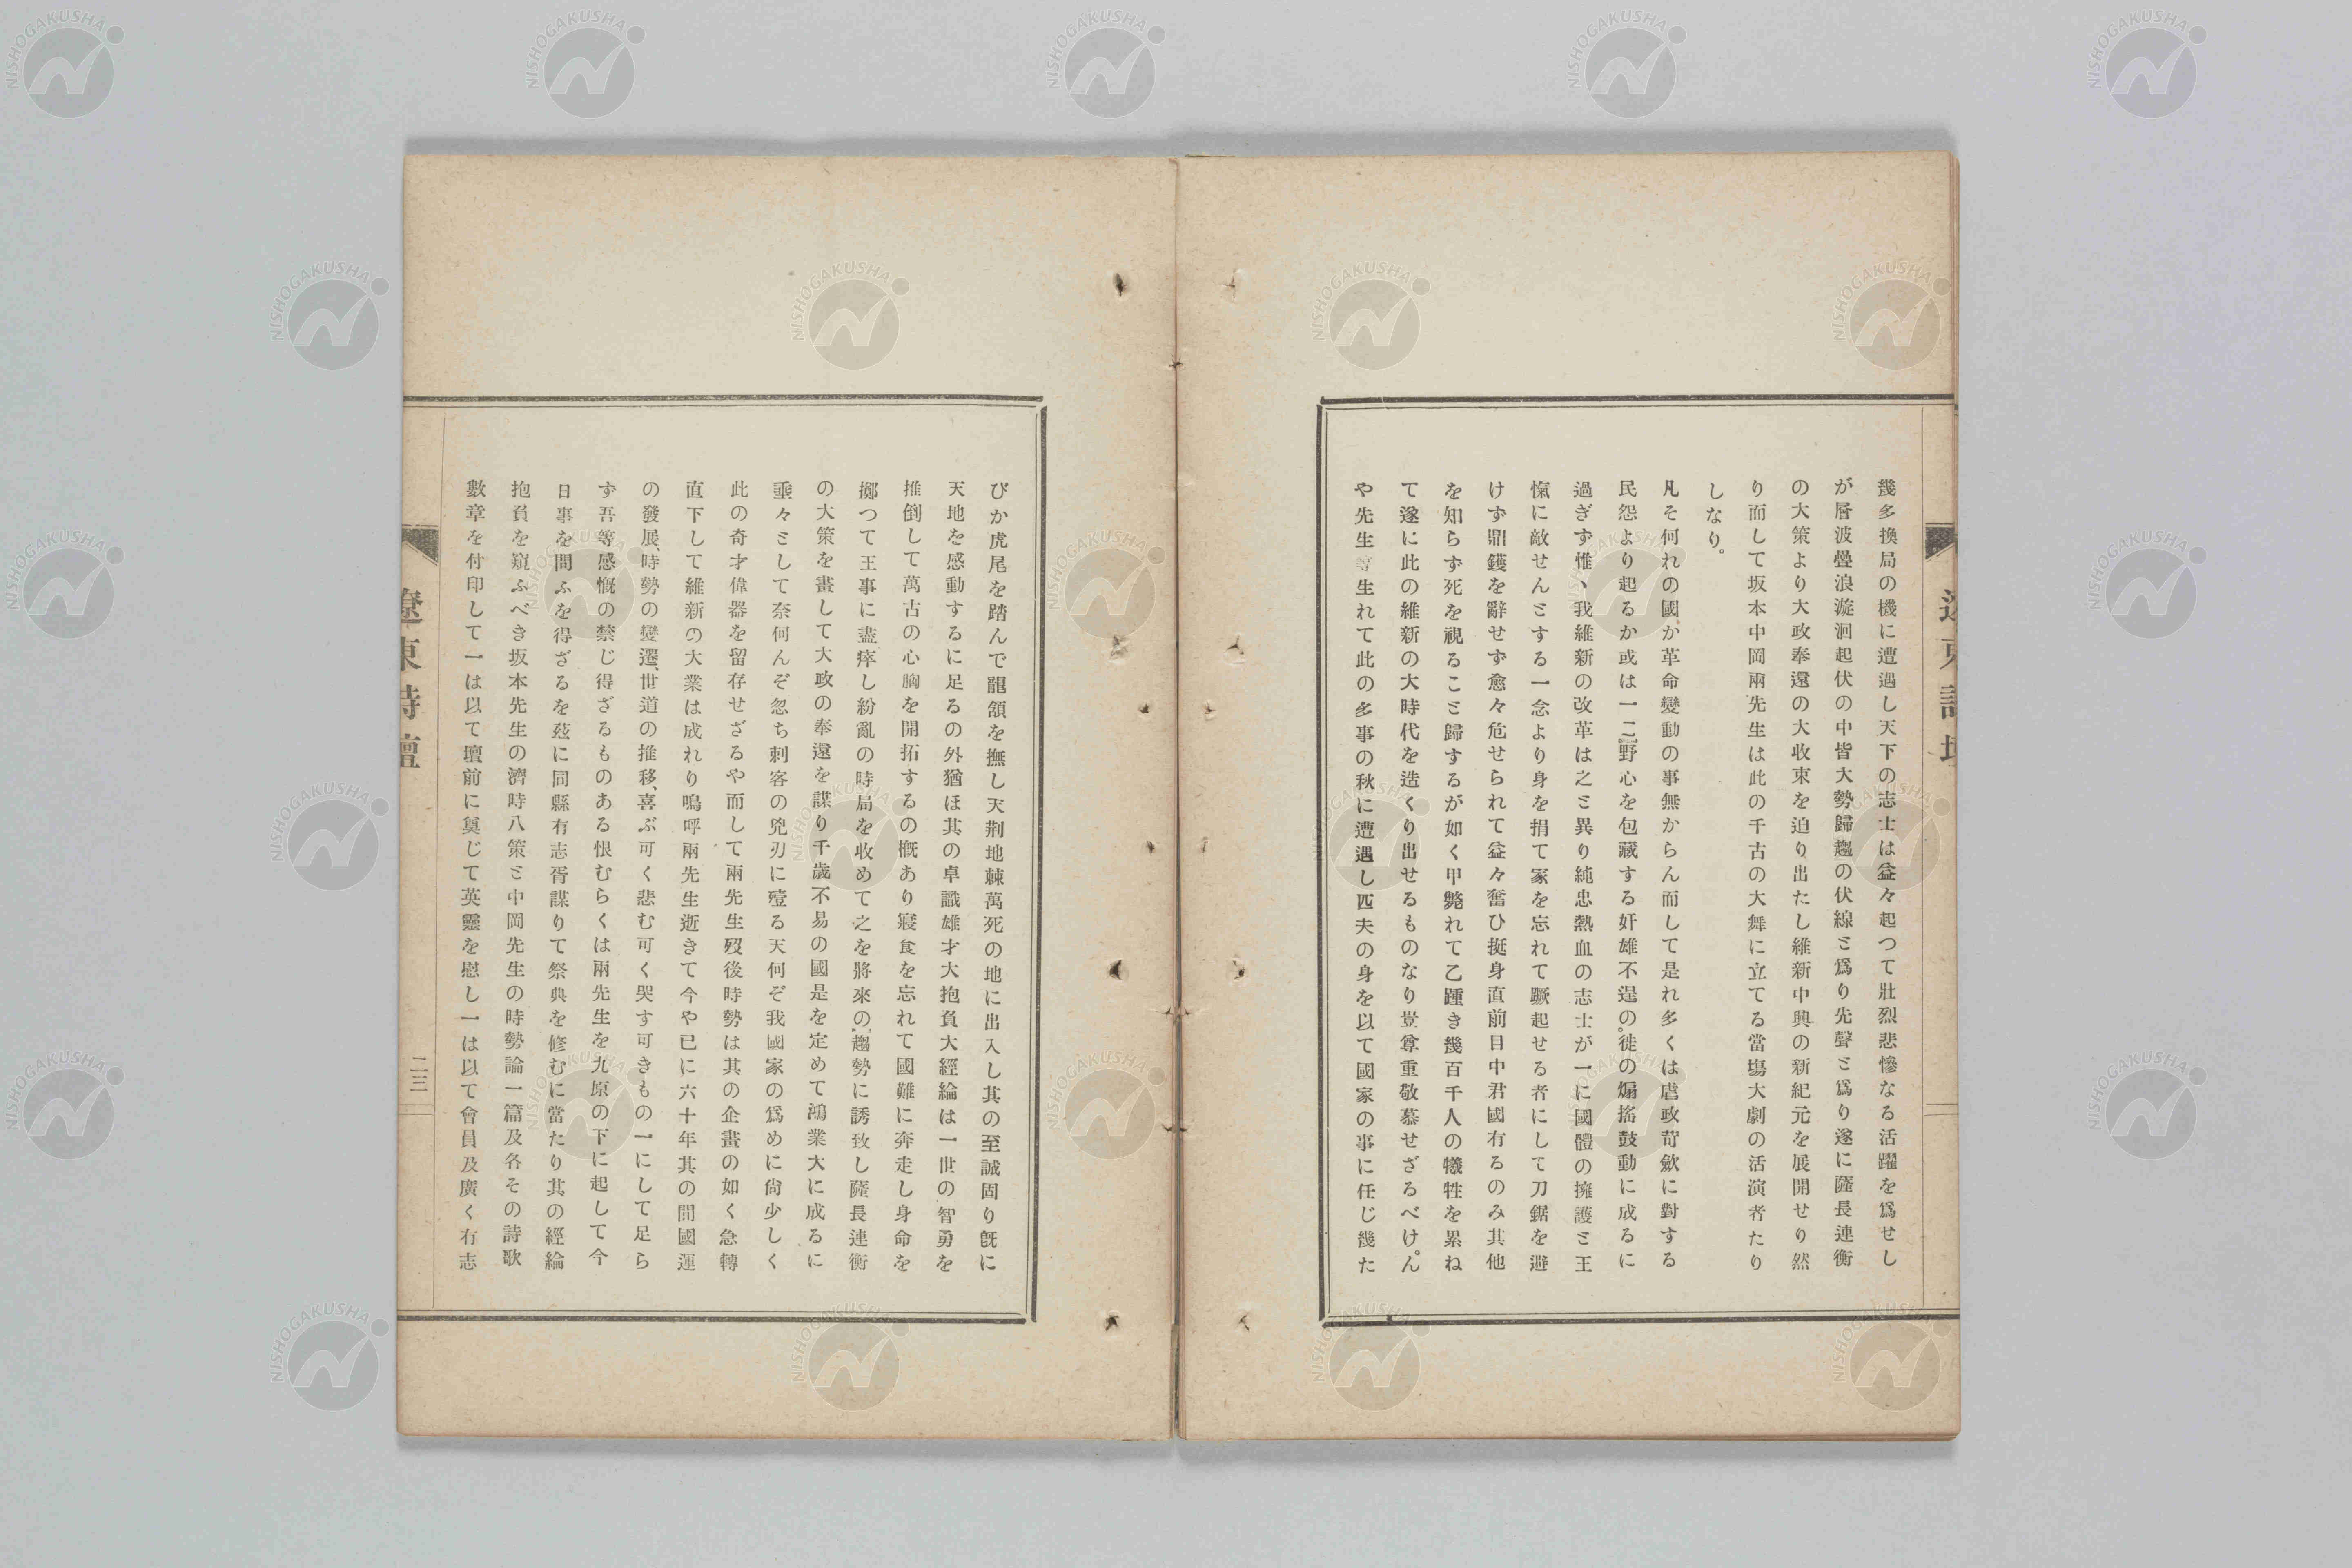 幾多換局の機に遭遇し天下の志士は益々起つて壯烈悲慘なる活躍を爲せし
が層波疊浪漩洄起伏の中皆大勢歸趨の伏線と爲り先聲と爲り遂に薩長連衡
の大策より大政奉還の大收束を迫り出たし維新中興の新紀元を展開せり然
り而して坂本中岡兩先生は此の千古の大舞に立てる當塲大劇の活演者たり
しなり。
凡そ何れの國か革命變動の事無からん而して是れ多くは虐政苛歛に對する
民怨より起るか或は一二野心を包藏する奸雄不逞の。徙の煽搖鼓動に成るに
過ぎず惟ヽ我維新の改革は之と異り純忠熱血の志士が一に國體の擁護と王
愾に敵せんとする一念より身を捐て家を忘れて蹶起せる者にして刀鋸を避
けず鼎鑊を辭せず愈々危せられて益々奮ひ挺身直前目中君國有るのみ其他
を知らず死を視ること歸するが如く甲斃れて乙踵き幾百千人の犧牲を累ね
て遂に此の維新の大時代を造くり出せるものなり豈尊重敬慕せざるべけ。ん
や先生等生れて此の多事の秋に遭遇し匹夫の身を以て國家の事に任じ幾た
遼東詩壇
びか虎尾を踏んで龍頷を撫し天荆地棘萬死の地に出入し其の至誠固り既に
天地を感動するに足るの外猶ほ其の卓識雄才大抱負大經綸は一世の智勇を
推倒して萬古の心胸を開拓するの槪あり寢食を忘れて國難に奔走し身命を
擲つて王事に盡瘁し紛亂の時局を收めて之を將來の趨勢に誘致し薩長連衡
の大策を畫して大政の奉還を謀り千歲不易の國是を定めて鴻業大に成るに
埀々として奈何んぞ忽ち刺客の兇刃に殪る天何ぞ我國家の爲めに尙少しく
此の奇才偉器を留存せざるや而して兩先生歿後時勢は其の企畫の如く急轉
直下して維新の大業は成れり嗚呼兩先生逝きて今や已に六十年其の間國運
の發展、時勢の變遷、世道の推移、喜ぶ可く悲む可く哭す可きもの一にして足ら
ず吾等感慨の禁じ得ざるものある恨むらくは兩先生を九原の下に起して今
日事を問ふを得ざるを玆に同縣有志胥謀りて祭典を修むに當たり其の經綸
抱負を窺ふべき坂本先生の濟時八策と中岡先生の時勢論一篇及各その詩歌
數章を付印して一は以て壇前に奠じて英靈を慰し一は以て會員及廣く有志
遼東詩壇
二三
NISHOGAKUSHA